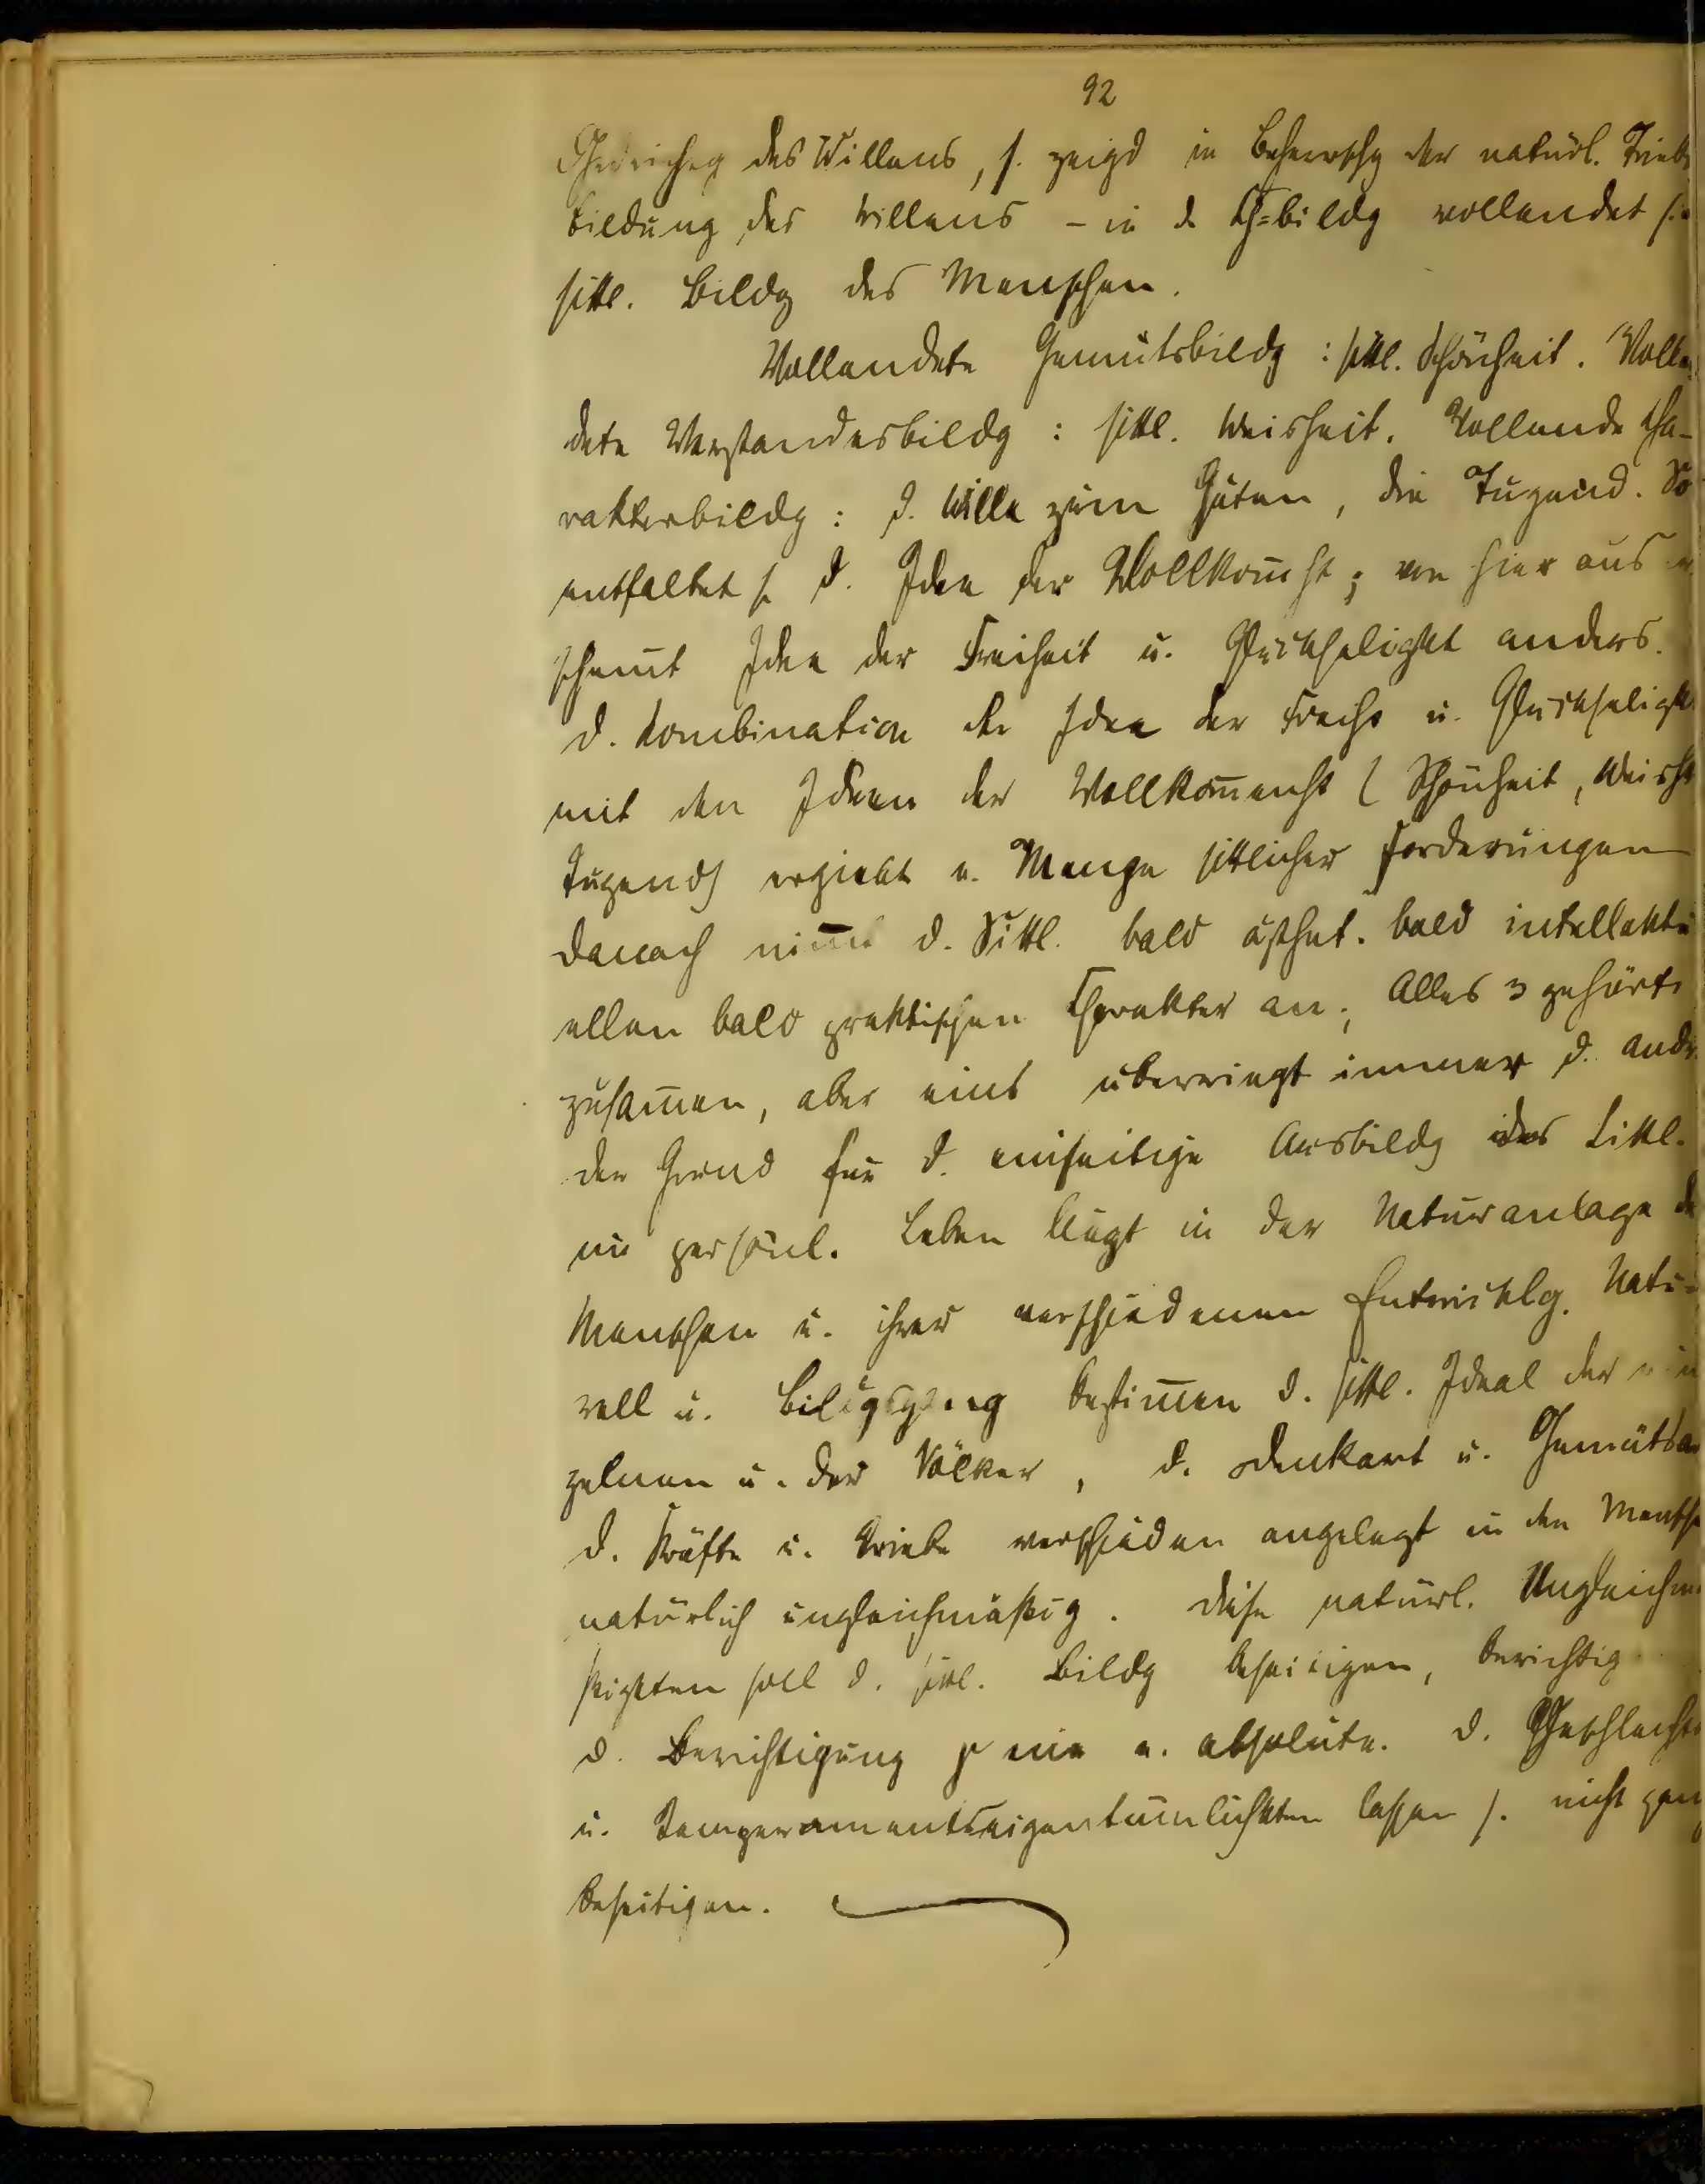 92
des Willens, s. zeigd in Beherrschg der natürl. Triebe
bildung des Willens – in d. Ch=bildg vollendet sie
sittl. Bildg des Menschen.
Vollendete Gemütsbildg : sittl. Schönheit. Vollen
dete Verstandesbildg : sittl. Weisheit. Vollende Cha-
rakterbildg : d. Wille zum Guten, die Tugend. So
entfaltet s. d. Idee der Vollkom̄ht ; von hier aus er
scheint Idee der Freiheit u. Glückseligkt anders.
d. Kombination der Idee der Freiht u. Glückseligkt
mit den Ideen der Vollkom̄enht ( Schönheit, Weisht
Tugend) ergiebt e. Menge sittlicher Forderungen
danach nim̄t d. Sittl. bald ästhet. bald intellektu
ellen bald praktischen Charakter an ; Alles 3 gehört
zusam̄en, aber eins überwiegt immer d. andr.
der Grund für d. einseitige Ausbildg des Sittl.
im persönl. Leben liegt in der Naturanlage des
Menschen u. ihrer verschiedenen Entwicklg. Natu-
rell u. Bildgsgang bestim̄en d. sittl. Ideal der ein
zelnen u. der Völker, d. Denkart u. Gemütsar
d. Kräfte u. Triebe verschieden angelegt in den Mensche
natürlich ungleichmäßig. Diese natürl. Ungleichmä
ßigkten soll d. sittl. Bildg beseitigen, berichtig
d. Berichtigung ist nie e. absolute. d. Geschlechts
u. Temperamentseigentümlichkten lassen s. nicht ganz
beseitigen.